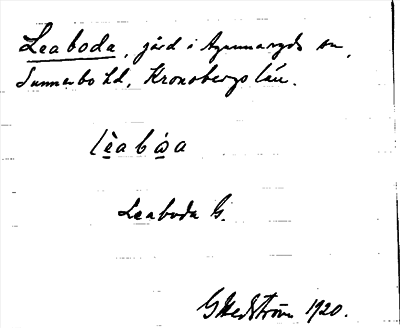 Leaboda, gård i Agunnaryds sn,
Sunnerbo hd, Kronobergs län.
lèabòa
Leaboda G.
G Hedström 1920.